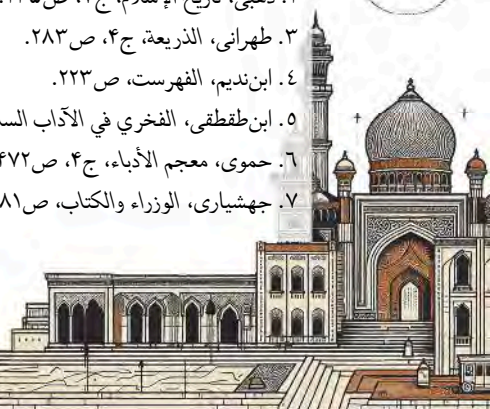 ٣. طهرانی، الذریعة، ج۴، ص۲۸۳.
٤. ابن‌ندیم، الفهرست، ص۲۲۳.
٥. ابن‌طقطقی، الفخري في الآداب
٦. حموی، معجم الأدباء، ج۴، ص۴۷۲
٧. جهشیاری، الوزراء والکتاب، ص۸۱